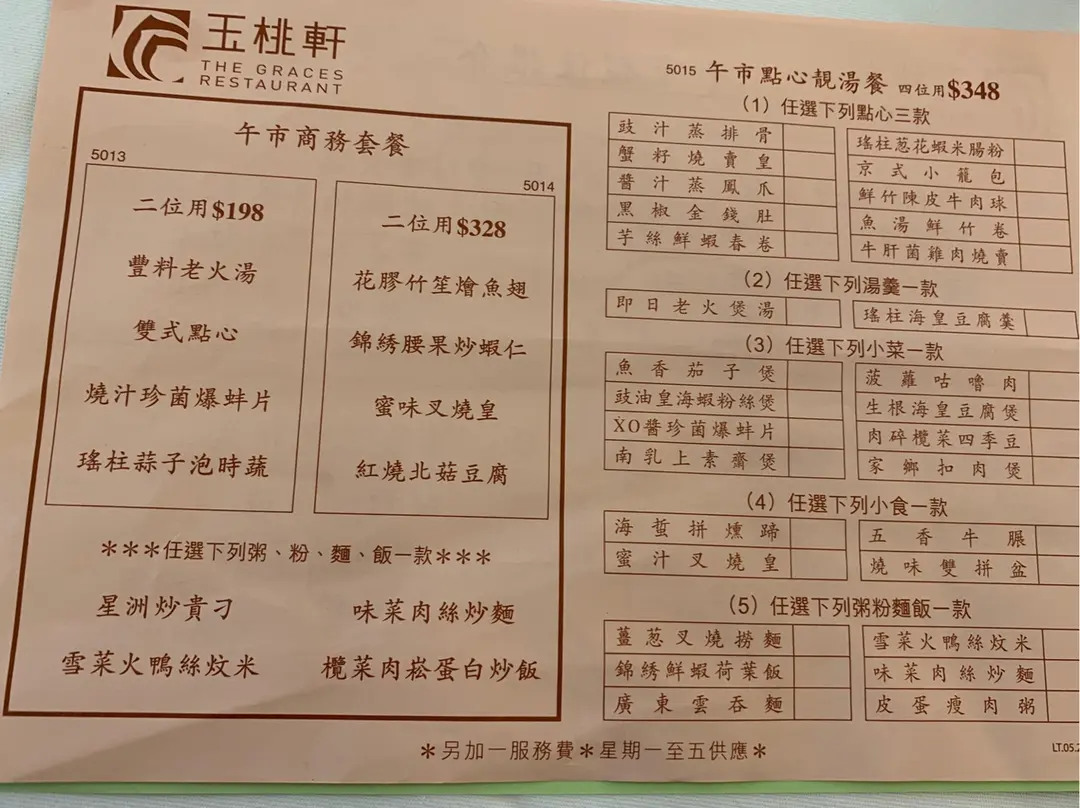 玉桃軒
THE GRACES
RESTAURANT
午市商務套餐
5013
二位用$198
豐料老火湯
雙式點心
燒汁珍菌爆蚌片
瑤柱蒜子泡時蔬
5014
二位用$328
花膠竹笙燴魚翅
錦綉腰果炒蝦仁
蜜味叉燒皇
紅燒北菇豆腐
***任選下列粥、粉、麵、飯一款***
星洲炒貴刁
味菜肉絲炒麵
雪菜火鴨絲炆米
欖菜肉崧蛋白炒飯
5015 午市點心靚湯餐 四位用$348
(1) 任選下列點心三款
豉汁蒸排骨
蟹籽燒賣皇
醬汁蒸鳳爪
黑椒金錢肚
芋絲鮮蝦春卷
瑤柱葱花蝦米腸粉
京式小籠包
鮮竹陳皮牛肉球
魚湯鮮竹卷
牛肝菌雞肉燒賣
(2) 任選下列湯羹一款
即日老火煲湯
瑤柱海皇豆腐羹
(3) 任選下列小菜一款
魚香茄子煲
豉油皇海蝦粉絲煲
XO醬珍菌爆蚌片
南乳上素齋煲
菠蘿咕嚕肉
生根海皇豆腐煲
肉碎欖菜四季豆
家鄉扣肉煲
(4) 任選下列小食一款
海蜇拼燻蹄
蜜汁叉燒皇
五香牛𦟌
燒味雙拼盆
(5) 任選下列粥粉麵飯一款
薑葱叉燒撈麵
錦綉鮮蝦荷葉飯
廣東雲吞麵
雪菜火鴨絲炆米
味菜肉絲炒麵
皮蛋瘦肉粥
*另加一服務費*星期一至五供應*
LT.05.2